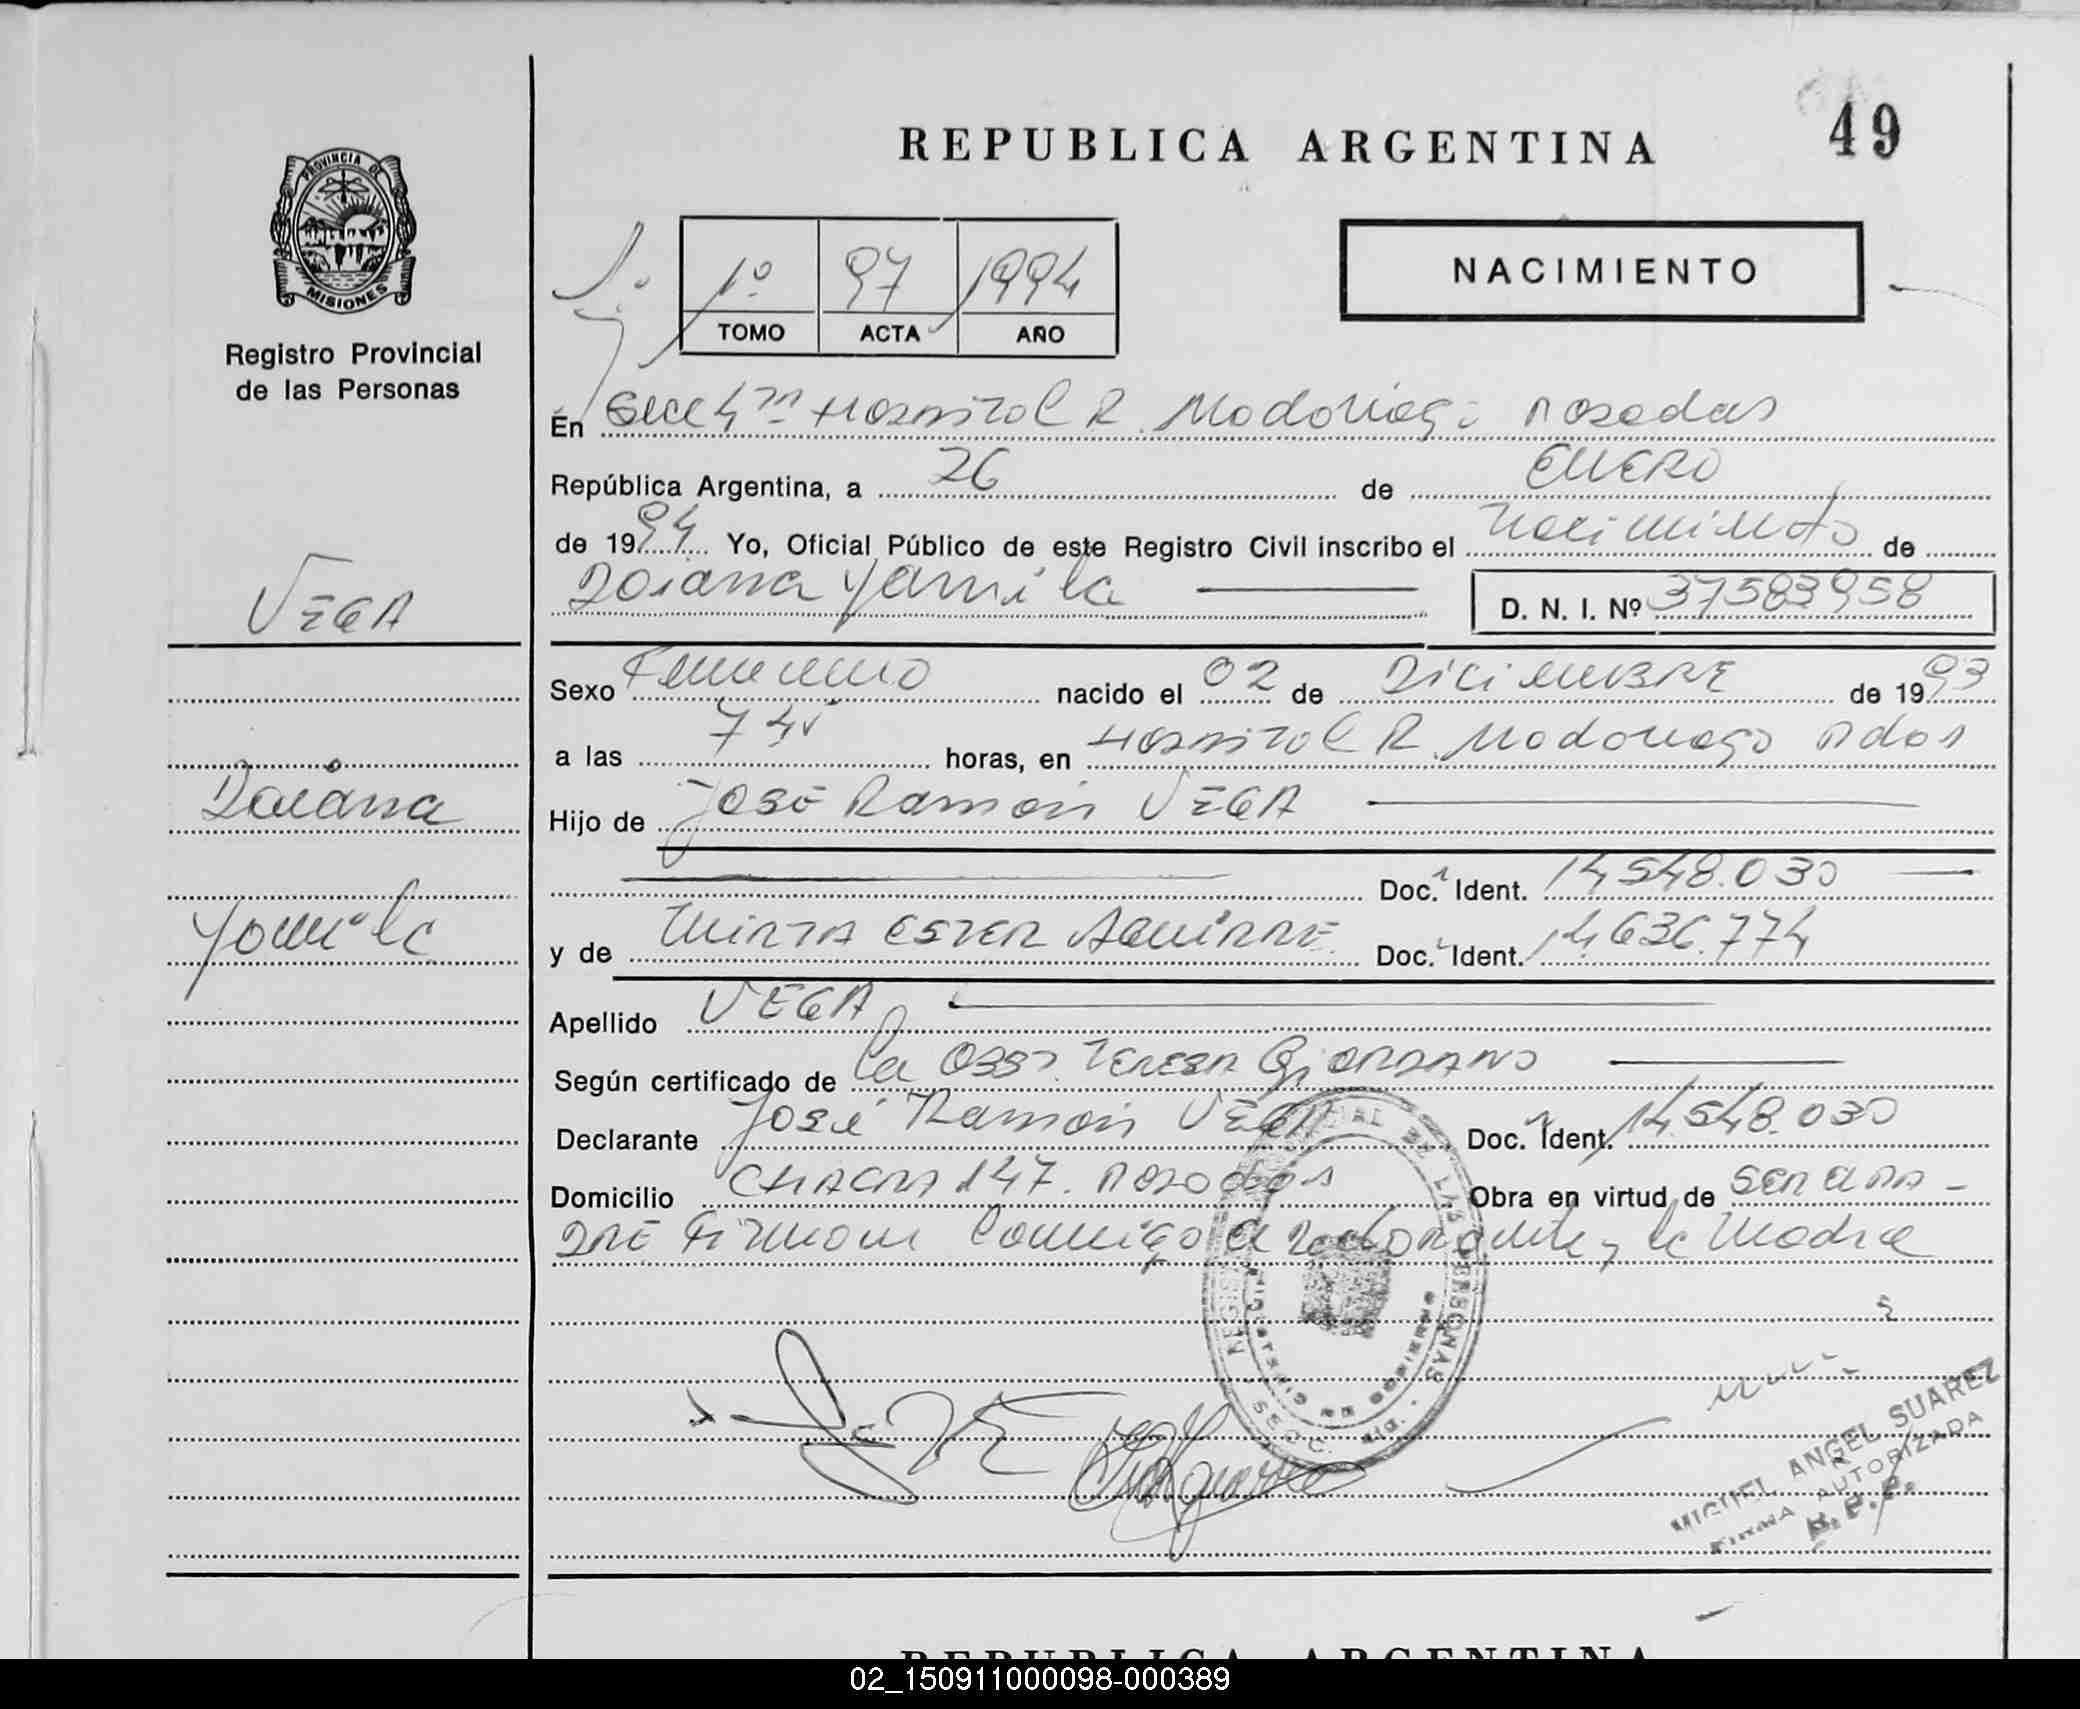 REPUBLICA ARGENTINA
49
PROVINCIA DE
MISIONES
Registro Provincial
de las Personas
1º 97 1994
TOMO ACTA AÑO
NACIMIENTO
En Secc 4ª Hospital R. Madariaga Posadas
República Argentina, a 26 de ENERO
de 1994 Yo, Oficial Público de este Registro Civil inscribo el Nacimiento de
Daiana Yamila
D. N. I. Nº 37583958
VEGA
Daiana
Yamila
Sexo Femenino nacido el 02 de DICIEMBRE de 1993
a las horas, en Hospital R. Madariaga Pdas
Hijo de José Ramón VEGA
Doc. Ident. 14548.030
y de MIRTA ESTER AGUIRRE Doc. Ident. 14636.774
Apellido VEGA
Según certificado de la Obst. TERESA GIORDANO
Declarante José Ramón VEGA Doc. Ident. 14.548.030
Domicilio CHACRA 147. Posadas Obra en virtud de SER PA-
DRE Firman Conmigo el declarante y la Madre
REGIST CIAL DE LAS PERSONAS
MINISTERIO DE GOBIERNO
SECC.
MIGUEL ANGEL SUAREZ
FIRMA AUTORIZADA
R.P.P.
REPUBLICA ARGENTINA
02_150911000098-000389